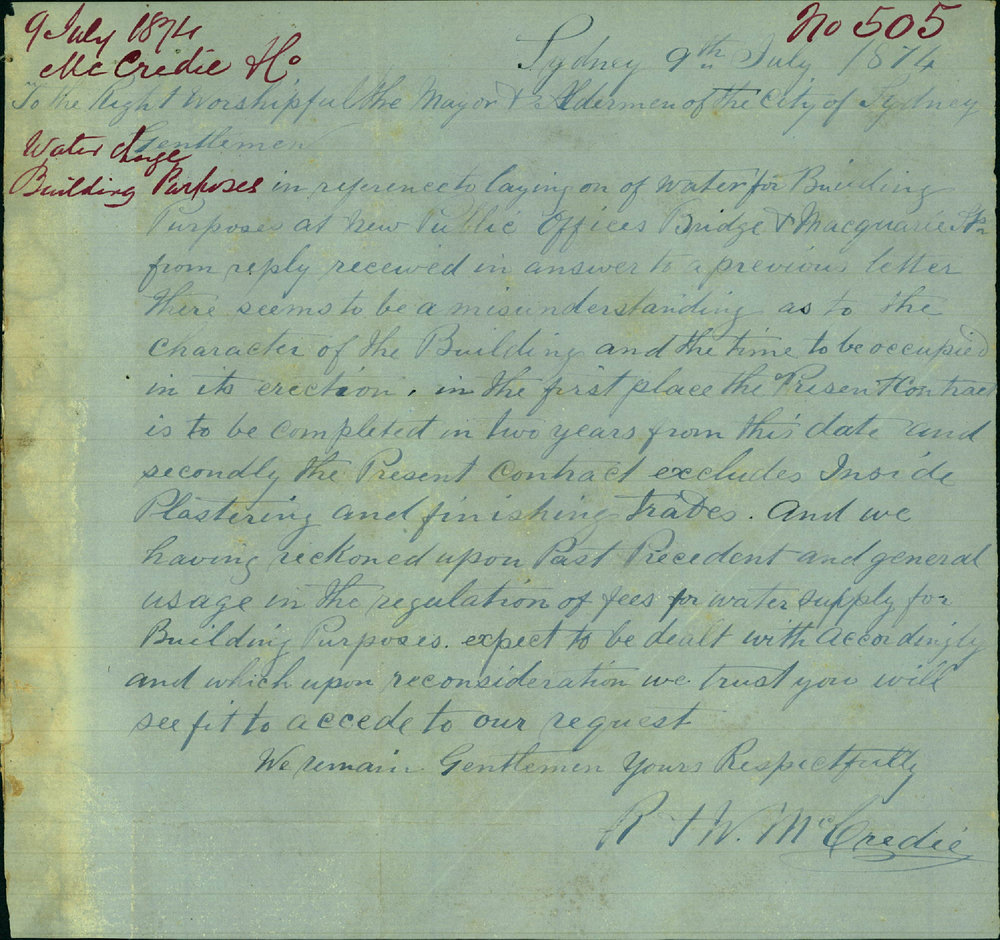 9 July 1874
McCredie & Co
No 505
Sydney 9th July 1874
To the Right Worshipful the Mayor & Aldermen of the City of Sydney
Gentlemen
Water charge
Building Purposes
in reference to laying on of water for Building
Purposes at New Public Offices Bridge & Macquarie Sts
from reply received in answer to a previous letter
there seems to be a misunderstanding as to the
Character of the Building and the time to be occupied
in its erection. in the first place the Present Contract
is to be completed in two years from this date and
secondly the Present Contract excludes Inside
Plastering and finishing Trades. And we
having reckoned upon Past Precedent and general
usage in the regulation of fees for water supply for
Building Purposes. expect to be dealt with accordingly
and which upon reconsideration we trust you will
see fit to accede to our request
We remain Gentlemen Yours Respectfully
R & W. McCredie